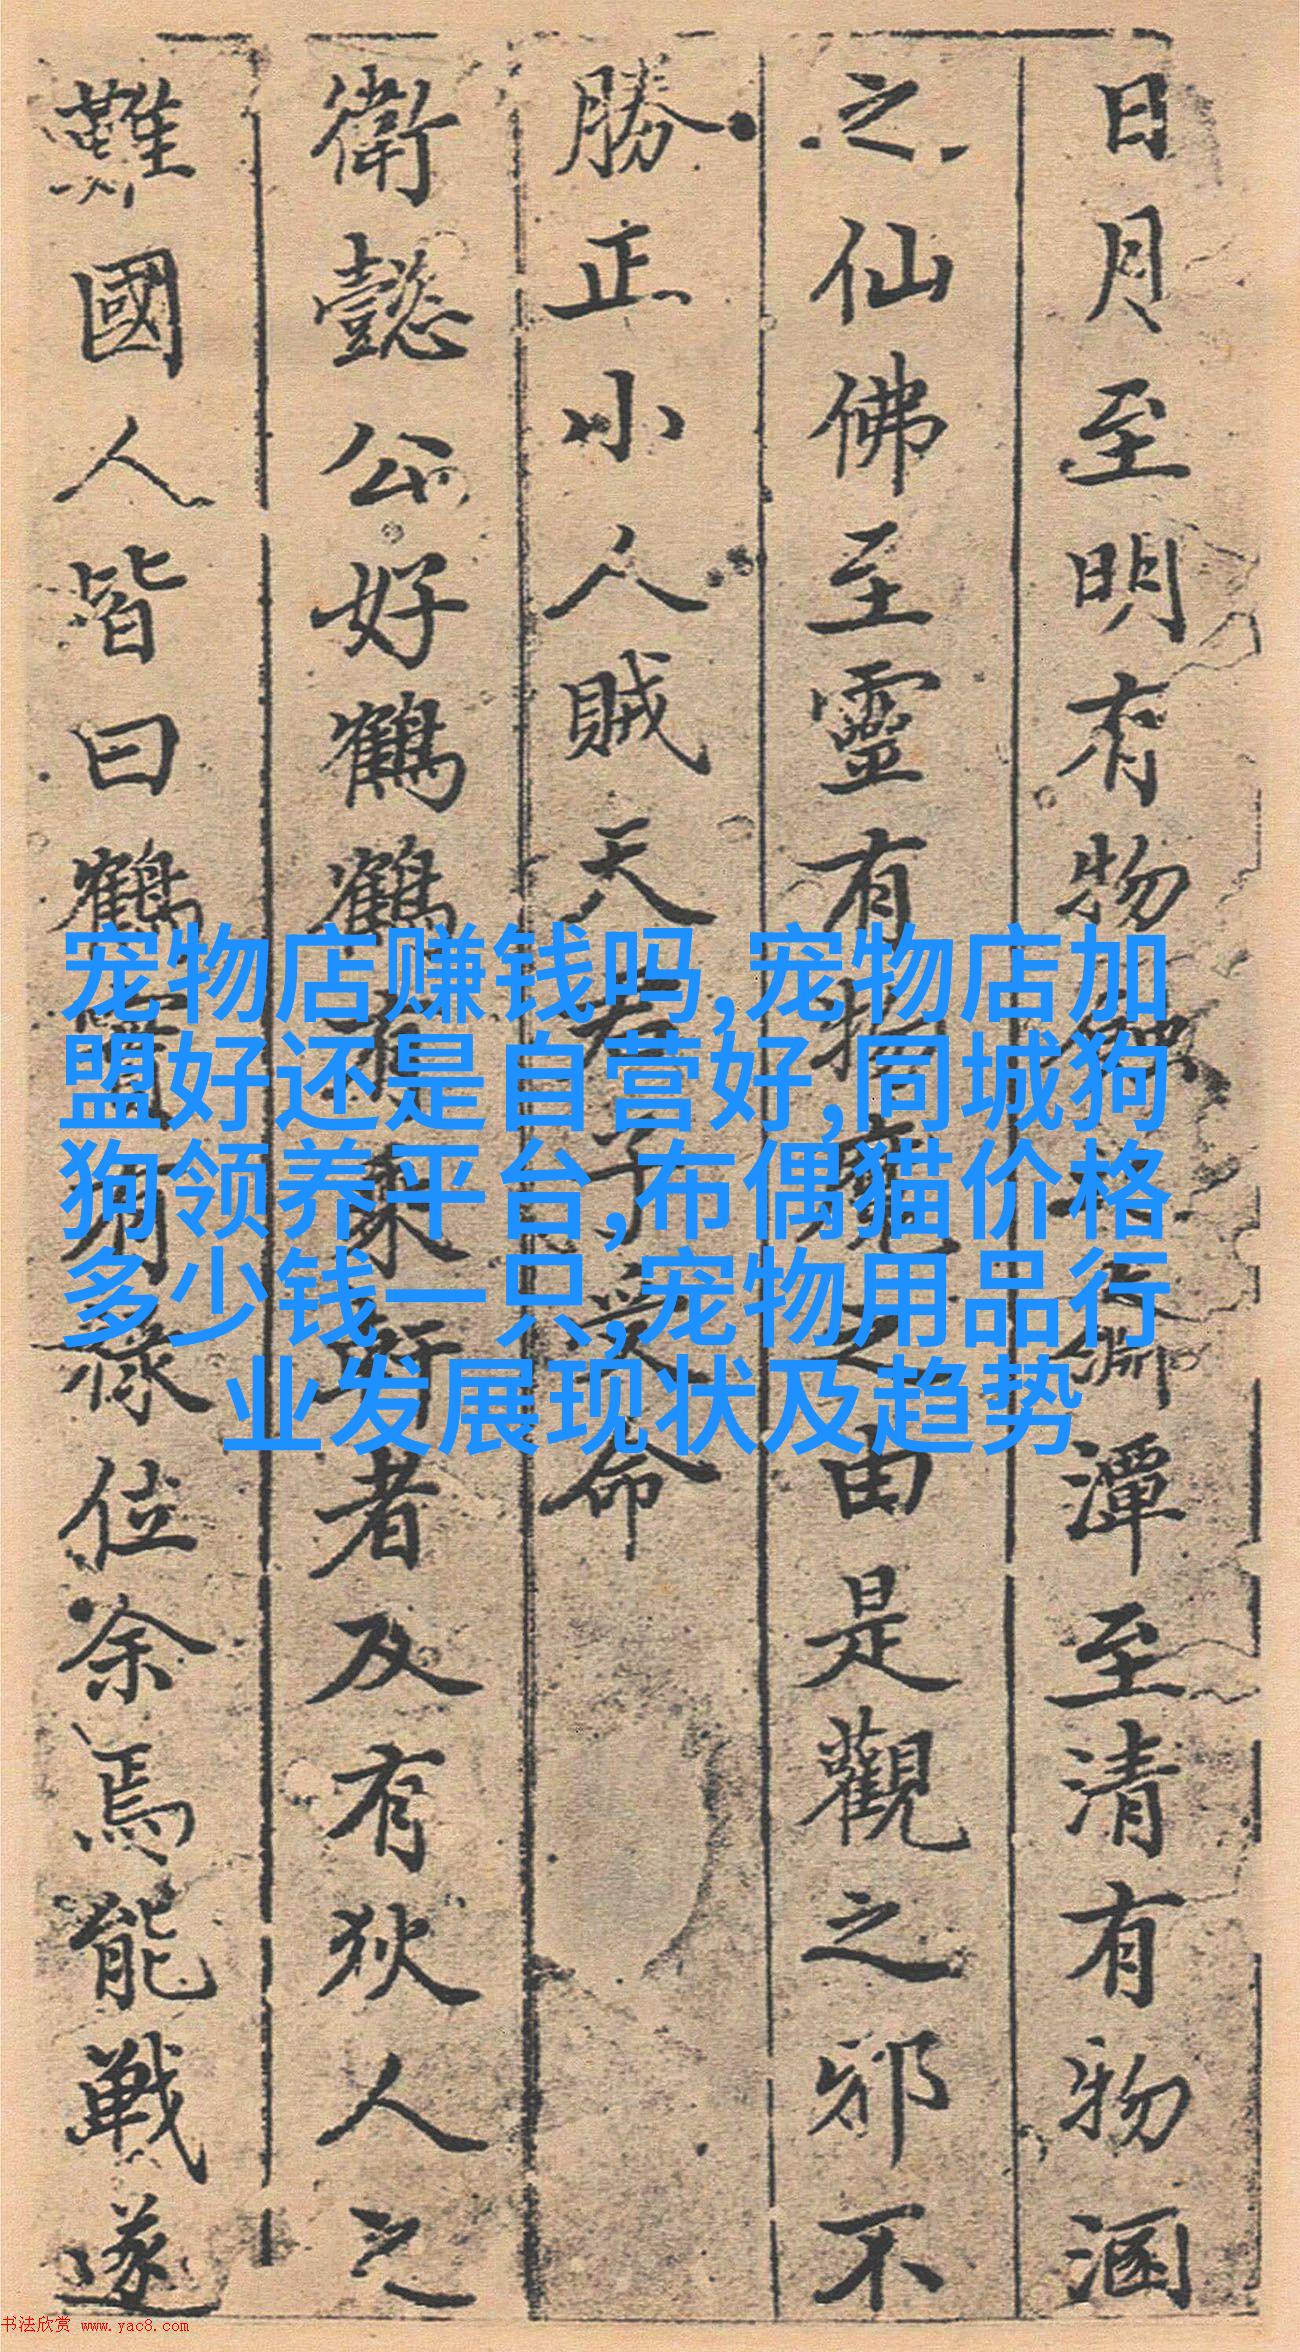 日月至明有物
潭至清有物涵
之仙佛至靈有
由是觀之邪不
勝正小人賊天
命
衛懿公好鶴鶴
者及有狄人之
難國人皆曰鶴
位余焉能戰遂
宠物店赚钱吗,宠物店加
盟好还是自营好,同城狗
狗领养平台,布偶猫价格
多少钱一只,宠物用品行
业发展现状及趋势
书法欣赏 www.yac8.com